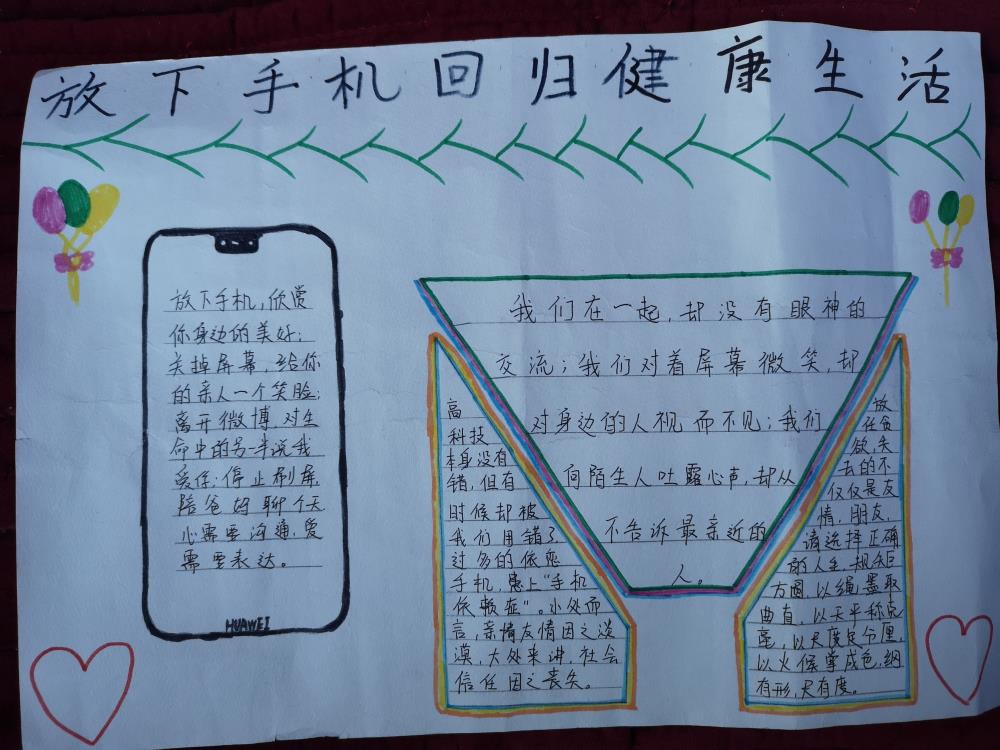 放下手机回归健康生活
放下手机,欣赏
你身边的美好;
关掉屏幕,给你
的亲人一个笑脸;
离开微博,对生
命中的另一半说我
爱你;停止刷屏,
陪爸妈聊个天
心需要沟通,爱
需要表达。
HUAWEI
我们在一起,却没有眼神的
交流;我们对着屏幕微笑,却
对身边的人视而不见;我们
向陌生人吐露心声,却从
不告诉最亲近的
人。
高
科技
本身没有
错,但有
时候却被
我们用错了
过多的依恋
手机,患上“手机
依赖症”。小处而
言,亲情友情因之淡
漠,大处来讲,社会
信任因之丧失。
放
任贪
欲,失
去的不
仅仅是友
情,朋友,
请选择正确
的人生,规矩
方圆,以绳墨取
曲直,以天平称克
毫,以尺度定分厘,
以火候掌成色,纲
有形,尺有度。